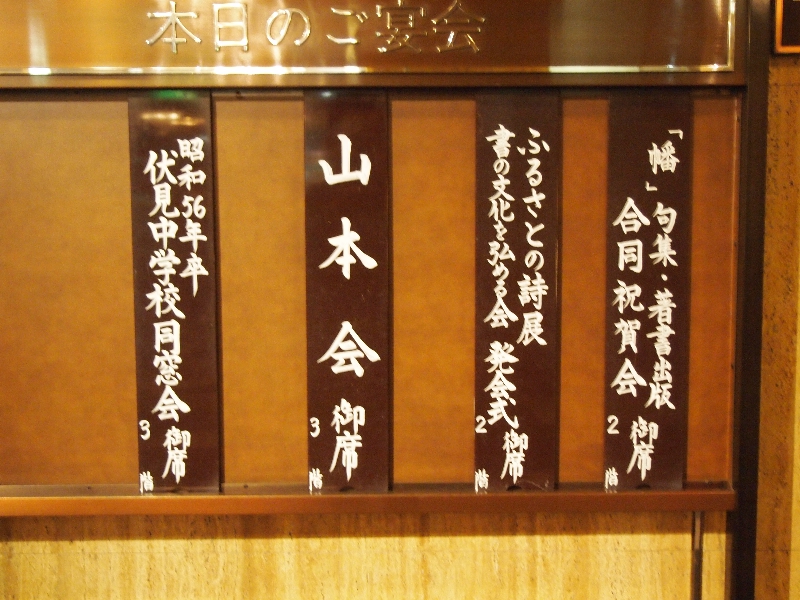 本日のご宴会
「幡」句集・著書出版
合同祝賀会
御席
2階
ふるさとの詩展
書の文化を弘める会 発会式
御席
2階
山本会
御席
3階
昭和56年卒
伏見中学校同窓会
御席
3階